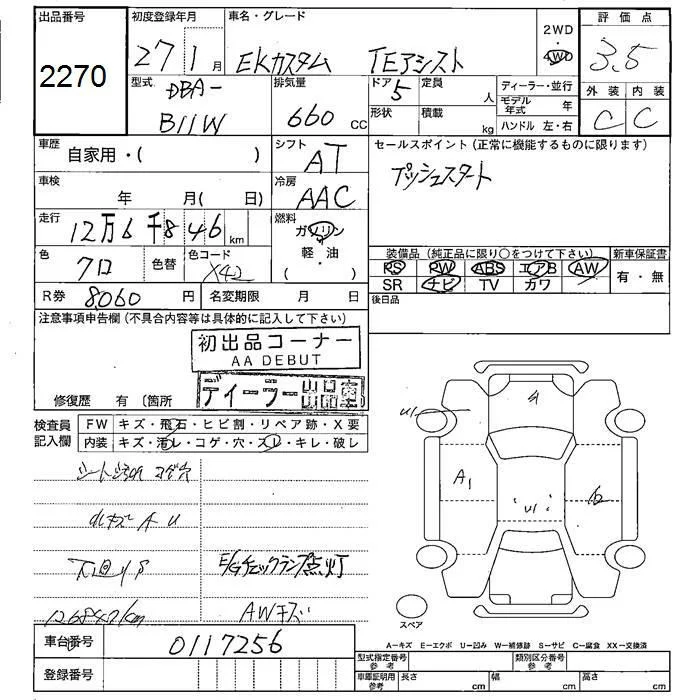 出品番号 2270
初度登録年月 27 1 月
車名・グレード EKカスタム TEアシスト
2WD 4WD
評価点 3.5
型式 DBA- B11W
排気量 660 CC
ドア 5 定員 人
形状 積載 kg
ディーラー・並行
モデル年式 年
ハンドル 左・右
外装 内装
C C
車歴 自家用・( )
シフト AT
セールスポイント(正常に機能するものに限ります)
プッシュスタート
車検 年 月( 日)
冷房 AAC
走行 12万6千846 km
燃料 ガソリン 軽・油 ( )
色 クロ 色替 色コード X42
装備品(純正品に限り〇をつけて下さい) 新車保証書
RS PW ABS エアB AW 有・無
SR ナビ TV カワ
R券 8060 円 名変期限 月 日
後日品
注意事項申告欄(不具合内容等は具体的に記入して下さい)
初出品コーナー
AA DEBUT
ディーラー出品室
修復歴 有 〔箇所
検査員記入欄
FW キズ・飛石・ヒビ割・リペア跡・X要
内装 キズ・汚レ・コゲ・穴・スレ・キレ・破レ
シート汚れ コゲ穴
小キズ A U
下回りS
E/Gチェックランプ点灯
126847km
AWキズ
U1 A
A1 U1
スペア
A−キズ E−エクボ U−凹み W−補修跡 S−サビ C−腐食 XX−交換済
車台番号 0117256
型式指定番号 参考 類別区分番号 参考
登録番号
車庫証明用 参考 長さ cm 幅 cm 高さ cm